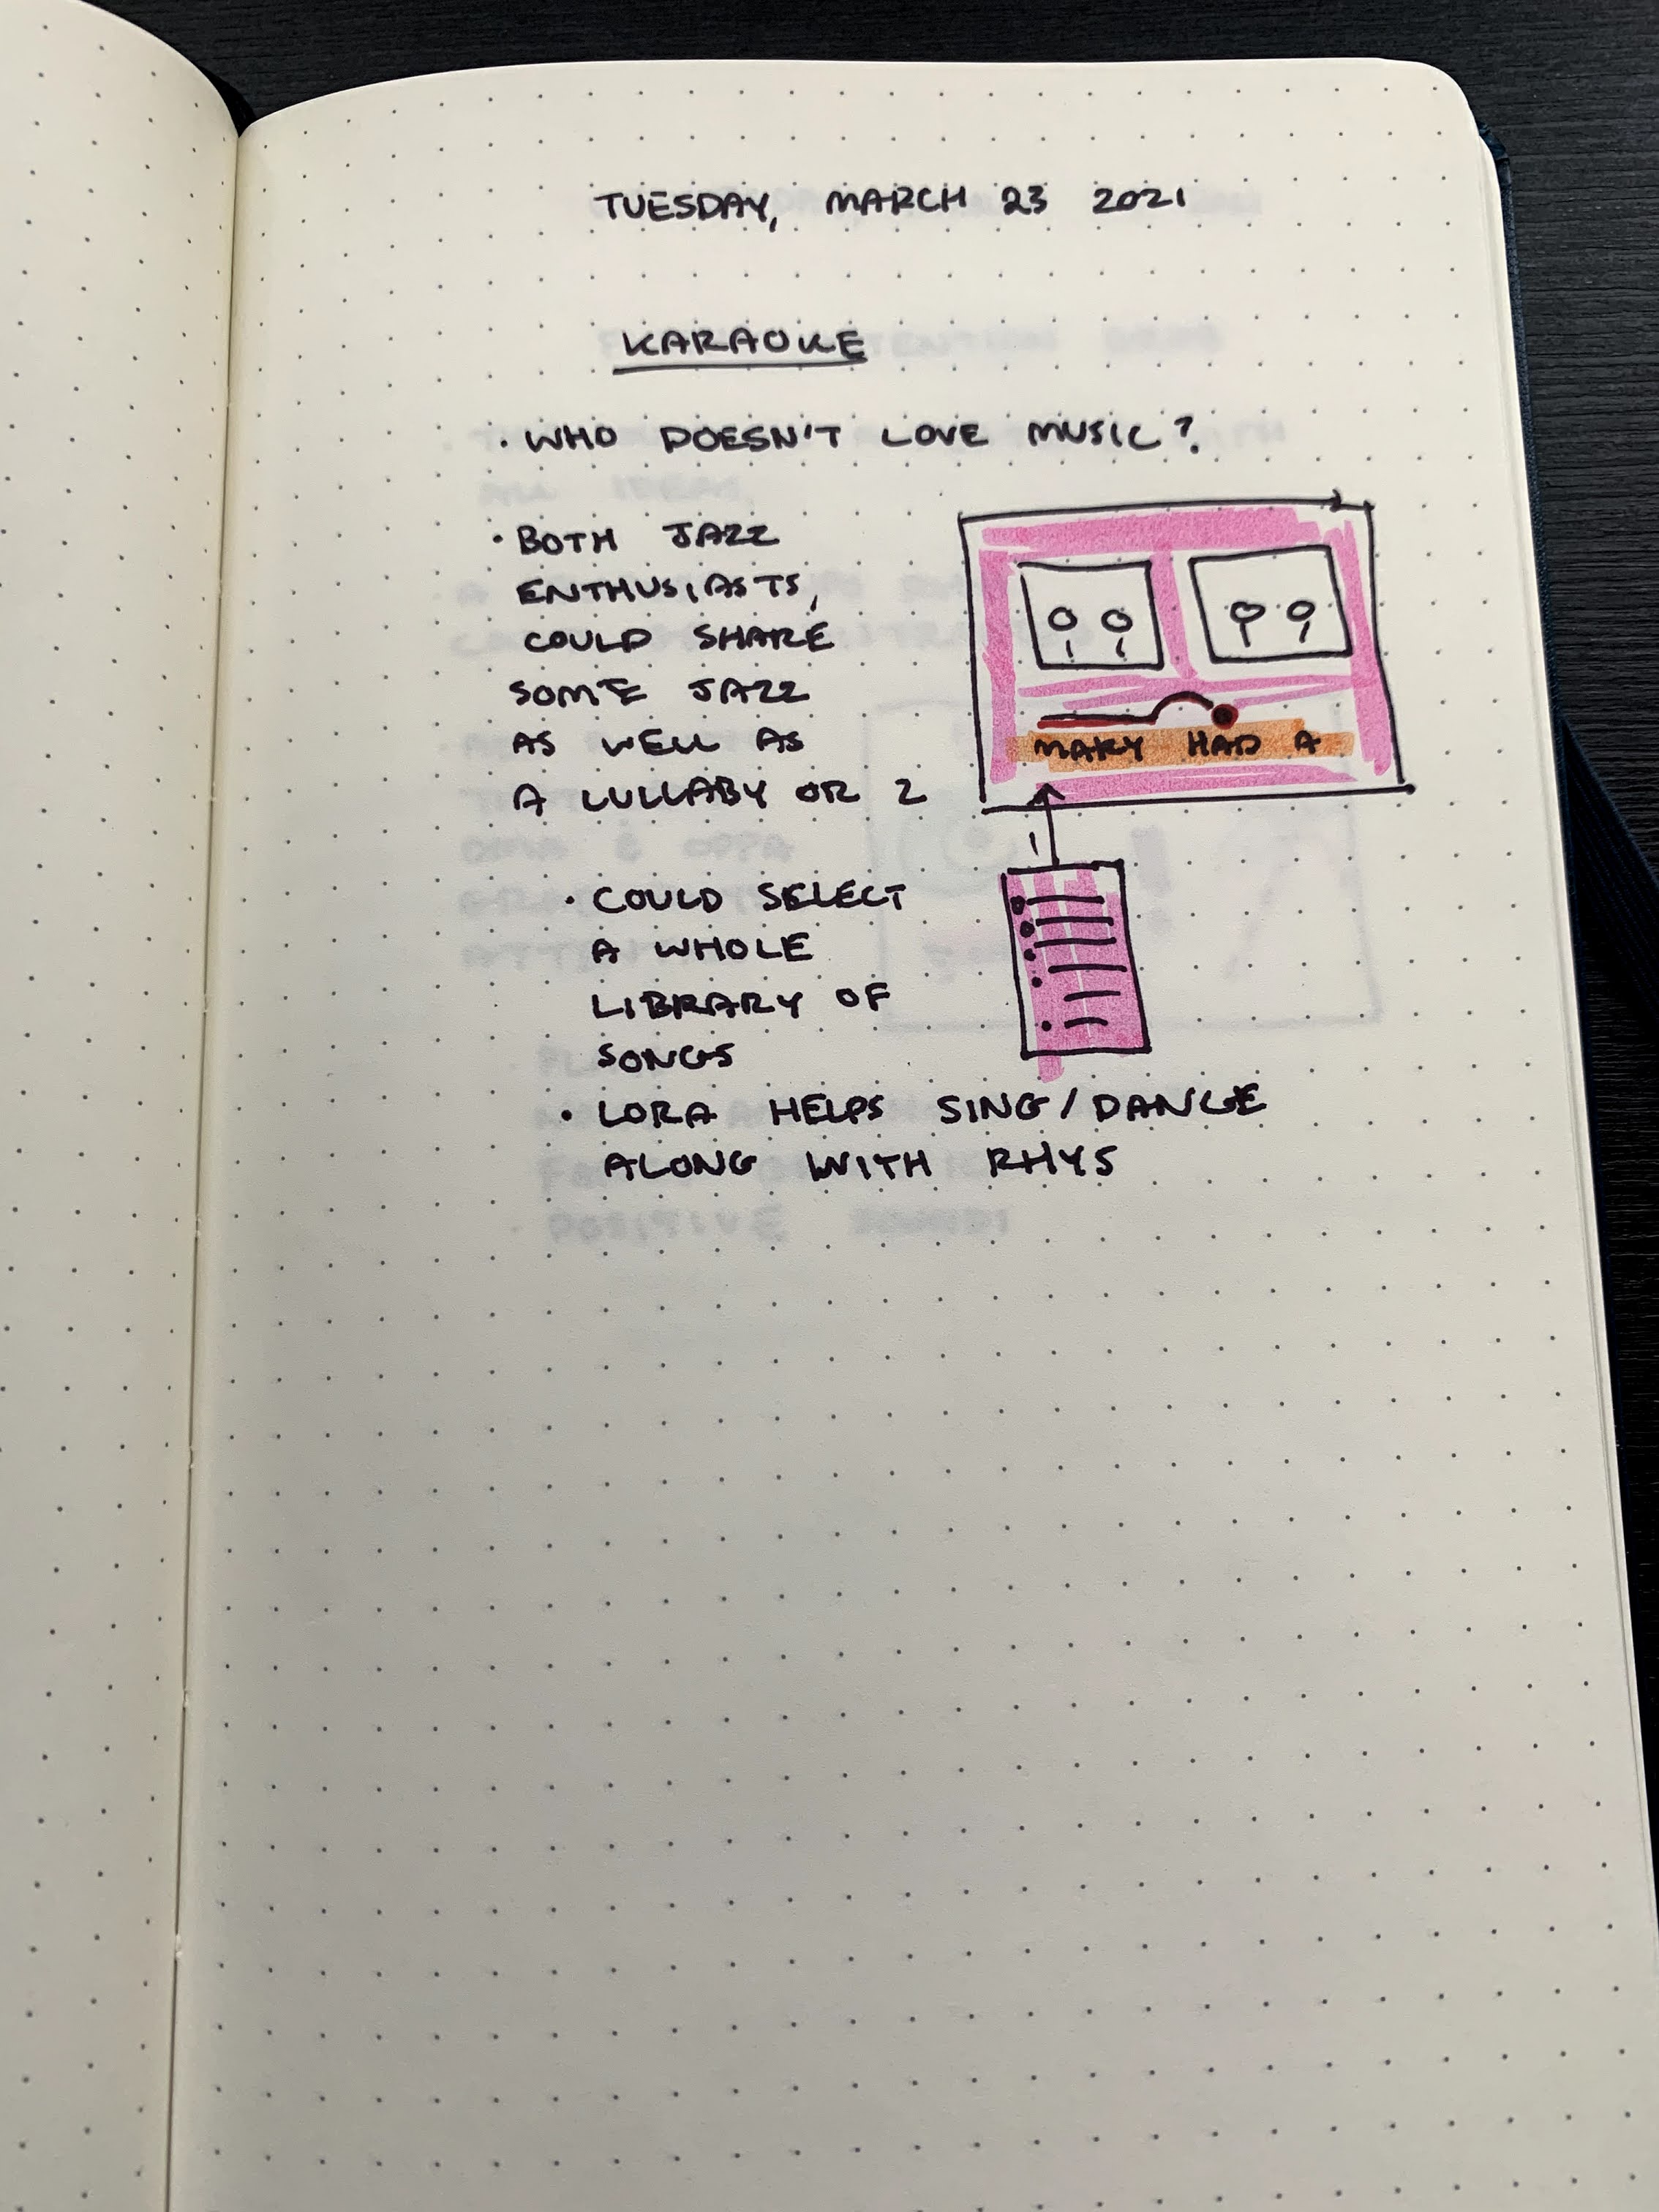 TUESDAY, MARCH 23 2021
KARAOKE
• WHO DOESN'T LOVE MUSIC?
• BOTH JAZZ
ENTHUSIASTS,
COULD SHARE
SOME JAZZ
AS WELL AS
A LULLABY OR 2
MARY HAD A
• COULD SELECT
A WHOLE
LIBRARY OF
SONGS
• LORA HELPS SING/DANCE
ALONG WITH RHYS